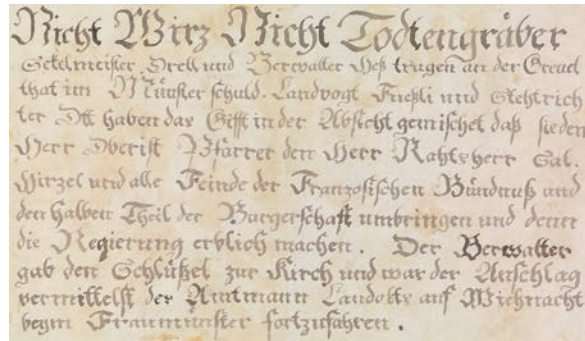 Nicht Wirz Nicht Todtengräber
Sekelmeister Orell und Verwalter Heß tragen an der Greuel
that im Münster schuld. Landvogt Füeßli und Stehtrich
ter Ott haben das Gifft in der Absicht gemischet daß sie den
Herr Oberist Pfarrer den Herr Rahtsherr Sal.
Hirzel und alle Feinde der Französischen Bündnuß und
den halben Theil der Burgerschaft umbringen und denn
die Regierung erblich machen. Der Verwalter
gab den Schlüßel zur Kirch und war der Anschlag
vermittelst der Amtmann Landolte auf Wiehnacht
beym Fraumünster fortzufahren.